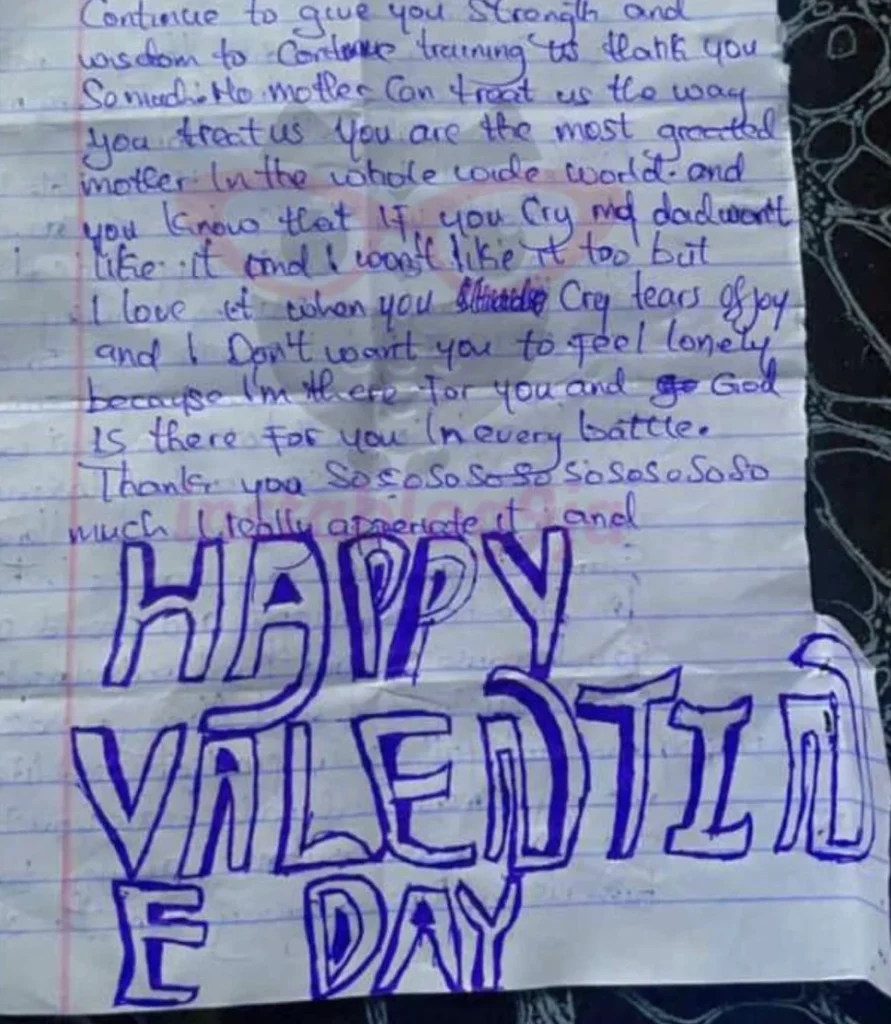 Continue to give you strength and
wisdom to Continue training us thank you
So much. No mother Can treat us the way
you treat us You are the most greatted
mother In the whole wide world. and
you know that If you Cry my dad won't
like it and I won't like it too but
I love it when you Cry tears of joy
and I Don't want you to feel lonely
because I'm there for you and God
Is there for you In every battle.
Thank you SoSoSoSoSoSoSoSoSoSo
much I really appreciate it and
HAPPY
VALENTIN
E DAY
instablog9ja